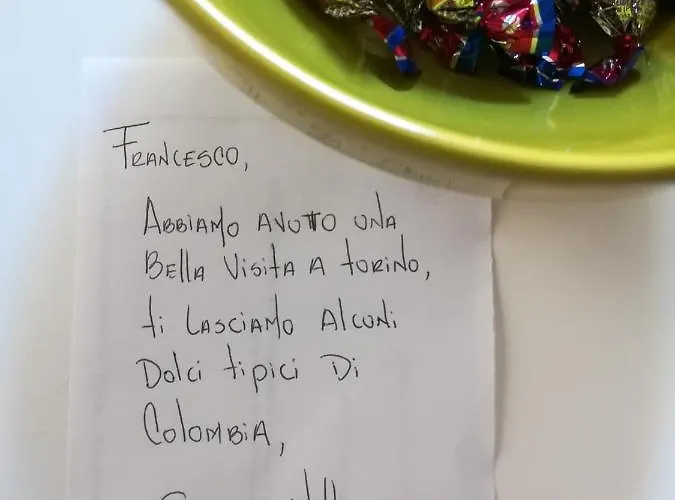 Francesco,
Abbiamo avutto una
Bella Visita a torino,
ti lasciamo alcuni
Dolci tipici Di
Colombia,